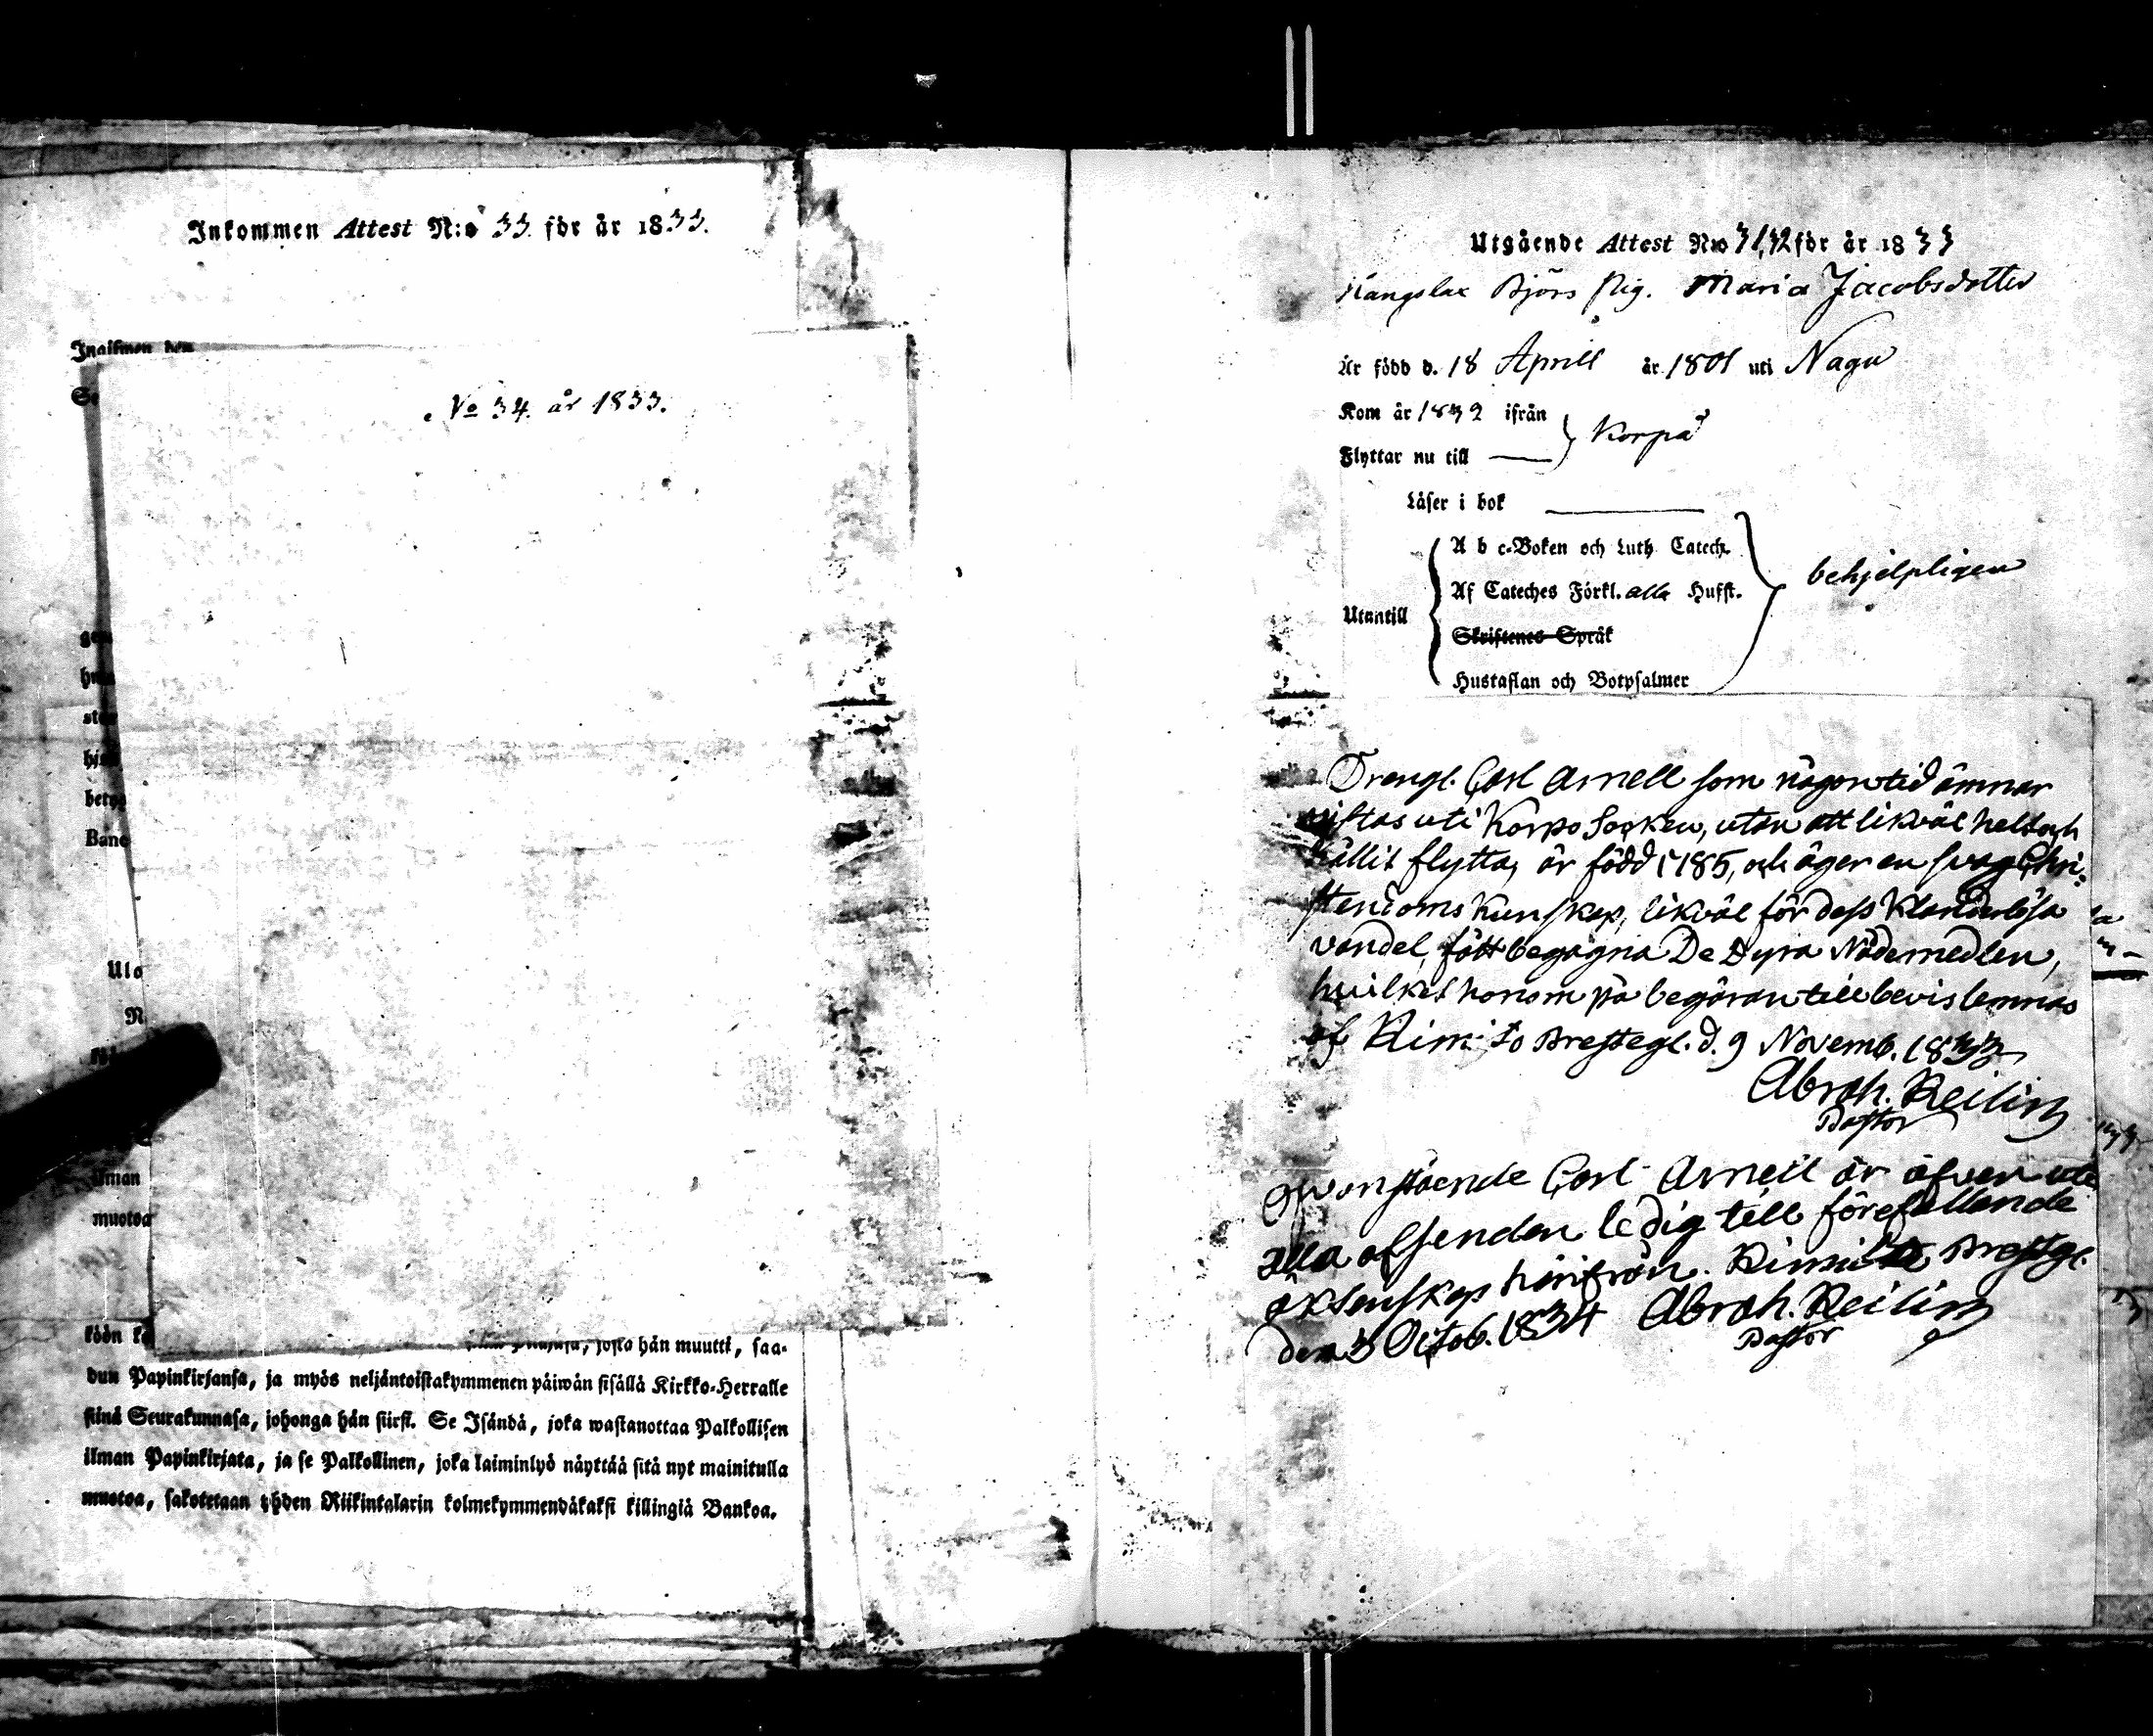 Inkommen Attest N:o 33 för år 1833.
No 34. år 1833.
josta hän muutti, saa-
dun Papinkirjansa, ja myös neljäntoistakymmenen päiwän sisällä Kirkko-Herralle
siinä Seurakunnasa, johonga hän siirsi. Se Isändä, joka wastanottaa Palkollisen
ilman Papinkirjata, ja se Palkollinen, joka laiminlyö näyttää sitä nyt mainitulla
muotoa, sakotetaan yhden Riikintalarin kolmekymmendäkaksi killingiä Bankoa.
Utgående Attest N:o för år 1833
Björs Pig. Maria Jacobsdotter
Är född d. 18 Aprill år 1801 uti Nagu
Kom år 1832 ifrån
Flyttar nu till
Korpå
Läser i bok
A b c-Boken och Luth Catech.
Af Cateches Förkl. alla Hufst.
Utantill
Skriftenes Språk
Hustaflan och Botpsalmer
behjelpligen
Drengl. Carl Arnell som någon tid ämnar
vistas uti Korpo Socken, utan att likväl helt och
hållit flytta, är född 1785, och äger en svag Chri-
stendoms kunskap, likväl för dess klanderlösa
vandel, fått begagna De Dyra Nådemedlen,
hvilket honom på begäran till bevis lemnas
af Kimito Prestegl. d. 9 Novemb. 1833
Abrah. Reilin
Pastor
Ofvanstående Carl Arnell är äfven uti
alla afseenden ledig till förefallande
äktenskap härifrån. Kimito Prestgl.
den 3 Octob. 1834 Abrah. Reilin
Pastor